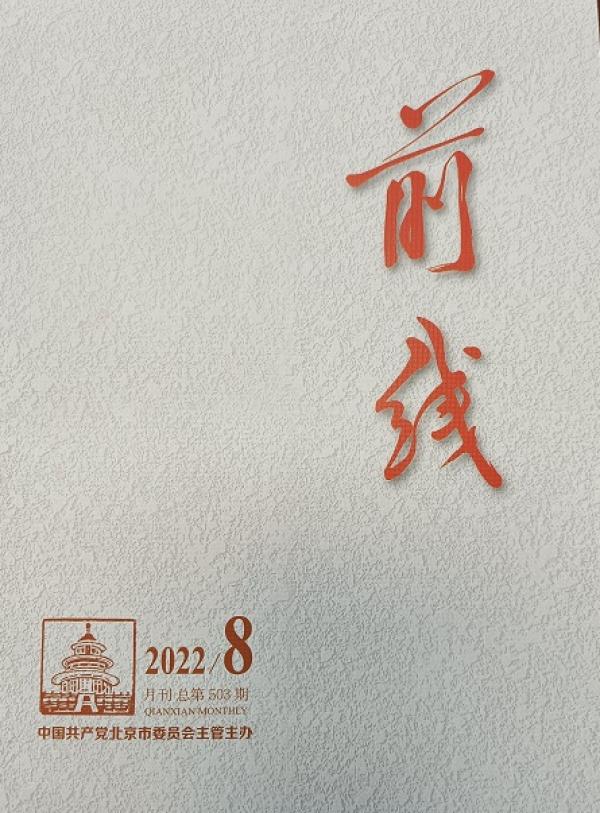 前线
2022/8
月刊 总第 503 期
QIANXIAN MONTHLY
中国共产党北京市委员会主管主办